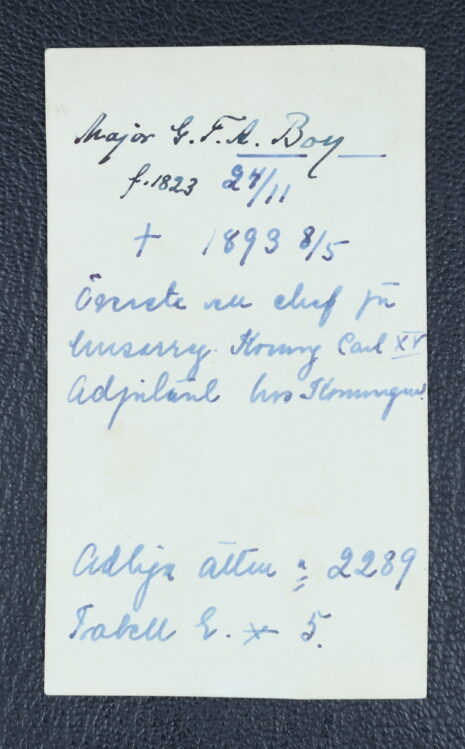 Major G. F. A. Boy
f. 1823 24/11
† 1893 8/5
Överste chef för
husarrg. Konung Carl XV
Adjutant hos Konungen
Adliga ätten 2289
Tabell 5.